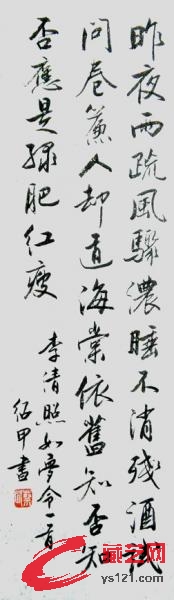 昨夜雨疏風驟濃睡不消殘酒試
問卷簾人却道海棠依舊知否知
否應是綠肥紅瘦
李清照如夢令一首
紹甲書
藏艺网
ys121.com